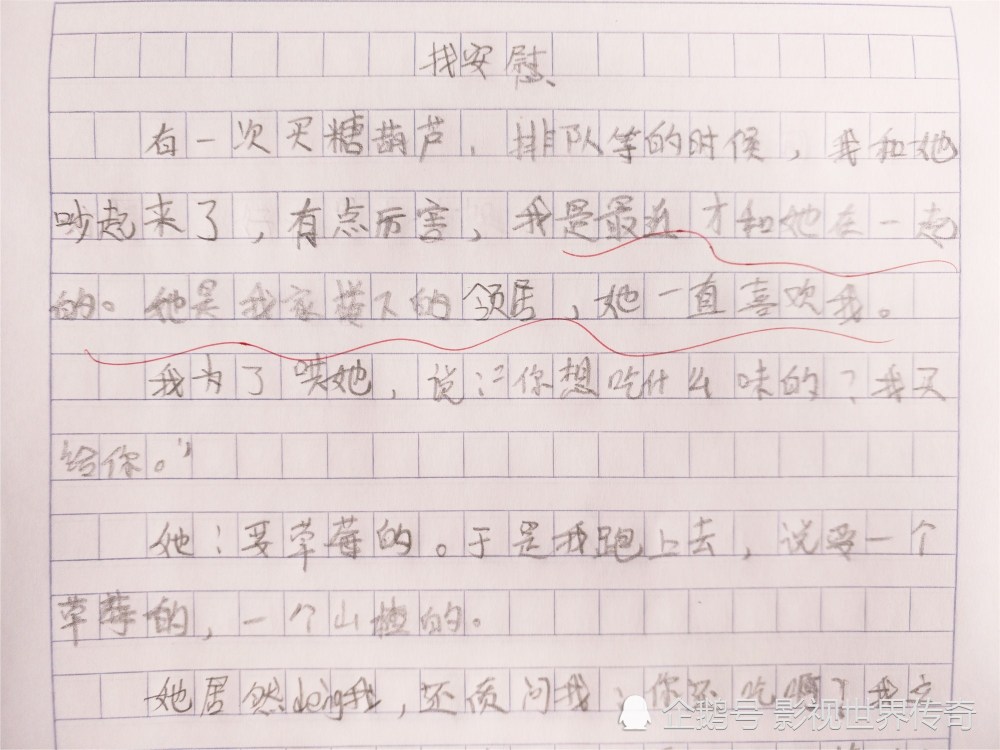 找安慰
有一次买糖葫芦,排队等的时候,我和她
吵起来了,有点厉害,我是最近才和她在一起
的。她是我家楼下的领居,她一直喜欢我。
我为了哄她,说:“你想吃什么味的?我买
给你。”
她:要草莓的。于是我跑上去,说要一个
草莓的,一个山楂的。
她居然deng我,还质问我:你还吃啊?我六
企鹅号 影视世界传奇